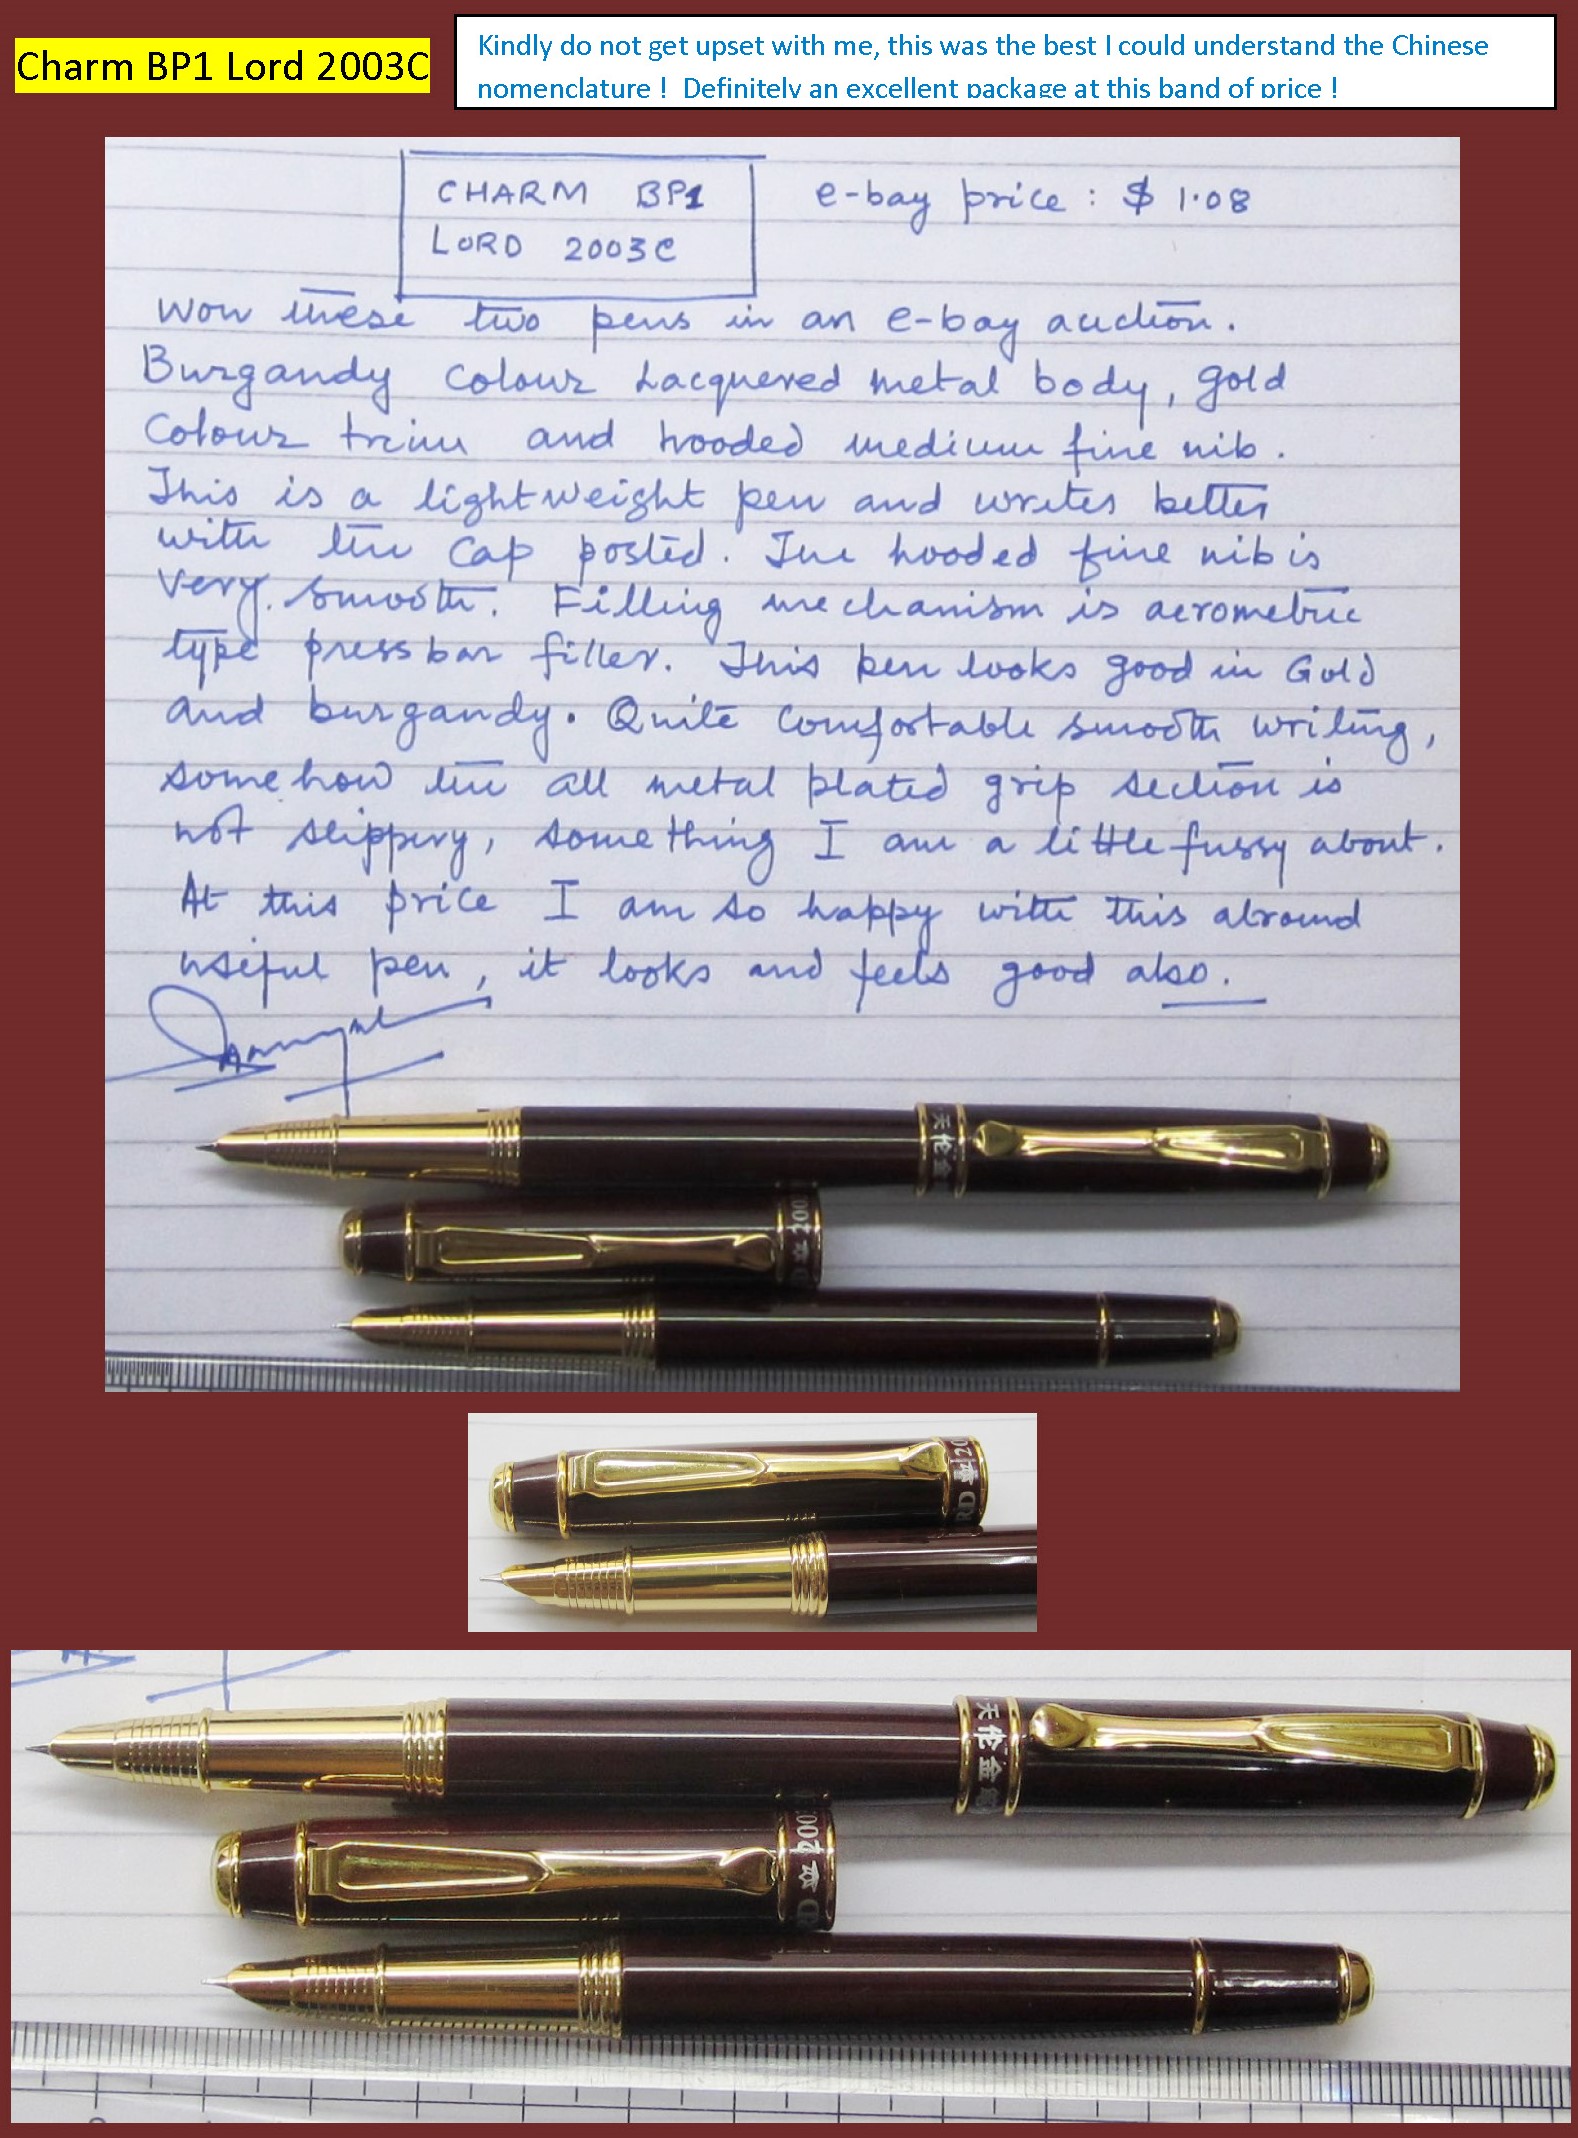 Charm BP1 Lord 2003C
Kindly do not get upset with me, this was the best I could understand the Chinese
nomenclature ! Definitely an excellent package at this band of price !
CHARM BP1
LORD 2003C
e-bay price : $ 1.08
Won these two pens in an e-bay auction.
Burgandy colour Lacquered metal body, gold
colour trim and hooded medium fine nib.
This is a lightweight pen and writes better
with the cap posted. The hooded fine nib is
very smooth. Filling mechanism is aerometric
type press bar filler. This pen looks good in Gold
and burgandy. Quite comfortable smooth writing,
somehow the all metal plated grip section is
not slippery, something I am a little fussy about.
At this price I am so happy with this alround
useful pen, it looks and feels good also.
天伦金
RD 200
RD 20
天伦金
RD 200
0